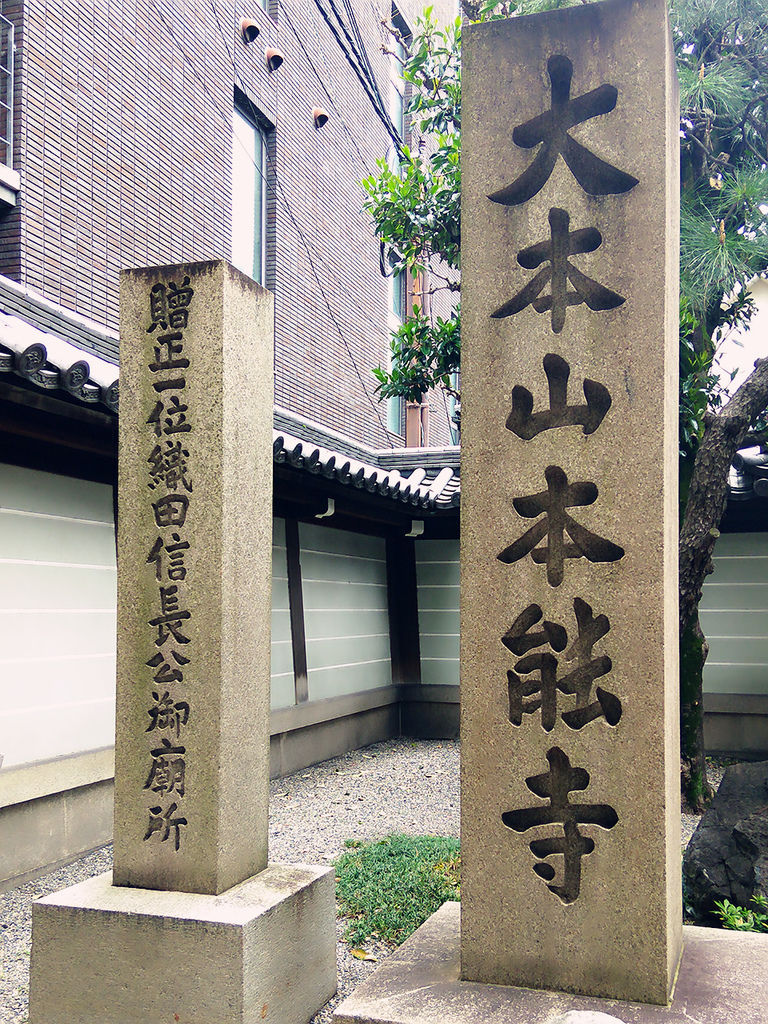 大本山本能寺
贈正一位織田信長公御廟所